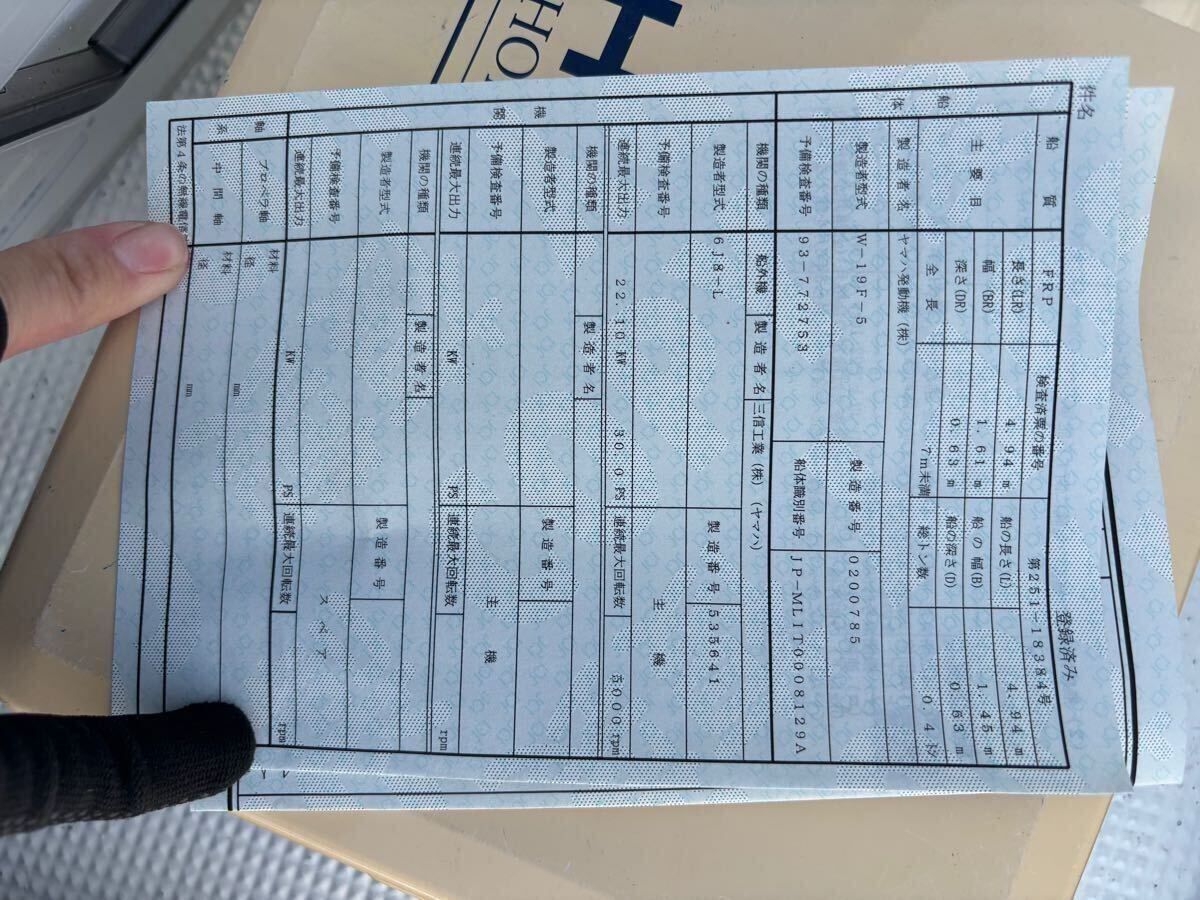 件名
登録済み
船体
船質 FRP 検査済票の番号 第251-18384号
主要目 長さ(LR) 4.94m 船の長さ(L) 4.94m
幅(BR) 1.61m 船の幅(B) 1.45m
深さ(DR) 0.63m 船の深さ(D) 0.63m
全長 7m未満 総トン数 0.4トン
製造者名 ヤマハ発動機(株)
製造者型式 W-19F-5 製造番号 0200785
予備検査番号 93-772753 船体識別番号 JP-ML1T0008129A
機関
機関の種類 船外機 製造者名 三信工業(株)(ヤマハ)
製造者型式 6J8-L 製造番号 535641
予備検査番号 主機
連続最大出力 22.10KW 30.0PS 連続最大回転数 5000rpm
機関の種類 製造者名
製造者型式 製造番号
予備検査番号 主機
連続最大出力 KW PS 連続最大回転数 rpm
機関の種類 製造者名
製造者型式 製造番号
予備検査番号 スペア
連続最大出力 KW PS 連続最大回転数 rpm
軸系
プロペラ軸 材料 径 mm
中間軸 材料 径 mm
法第4条の無線電信
HO